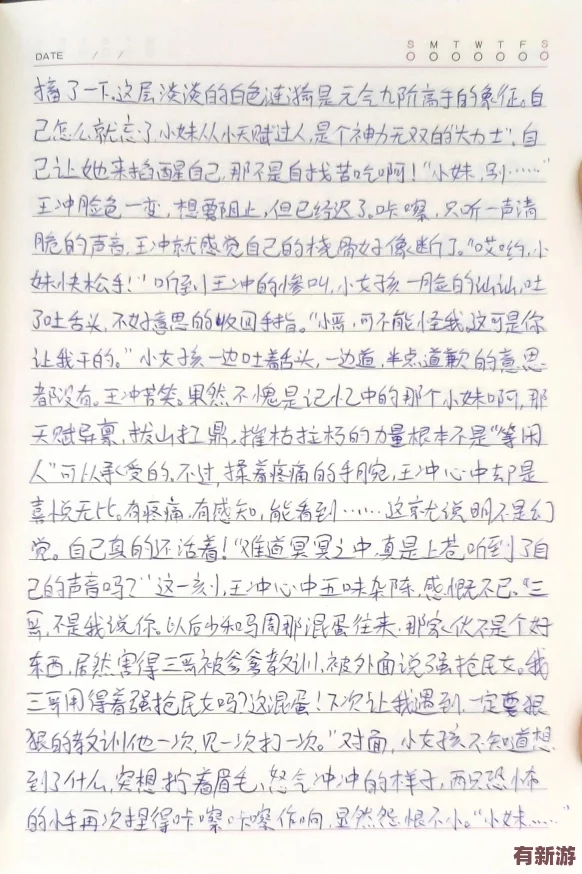 DATE / /
S M T W T F S
搐了一下。这层淡淡的白色涟漪是元气九阶高手的象征。自
己怎么就忘了，小妹从小天赋过人，是个神力无双的“大力士”，自
己让她来掐醒自己，那不是自找苦吃啊！“小妹，别……”
王冲脸色一变，想要阻止，但已经迟了。咔嚓，只听一声清
脆的声音，王冲就感觉自己的桡骨好像断了。“哎哟，小
妹快松手！”听到王冲的惨叫，小女孩一脸的讪讪，吐
了吐舌头，不好意思的收回手指。“三哥，可不能怪我，这可是你
让我干的。”小女孩一边吐着舌头，一边道，半点道歉的意思
都没有。王冲苦笑。果然不愧是记忆中的那个小妹啊，那
天赋异禀，拔山扛鼎，摧枯拉朽的力量根本不是“等闲
人”可以承受的。不过，揉着疼痛的手腕，王冲心中却是
喜悦无比。有疼痛，有感知，能看到……这就说明不是幻
觉。自己真的还活着！“难道冥冥之中，真是上苍听到了自
己的声音吗？”这一刻，王冲心中五味杂陈，感慨不已。“三
哥，不是我说你。以后少和马周那混蛋往来，那家伙不是个好
东西，居然害得三哥被爹爹教训，被外面说强抢民女。我
三哥用得着强抢民女吗？这混蛋！下次让我遇到，一定要狠
狠的教训他一次，见一次打一次。”对面，小女孩不知道想
到了什么，突想拧着眉毛，怒气冲冲的样子，两只恐怖
的小手再次捏得咔嚓咔嚓作响，显然怨恨不小。“小妹……”
有新游